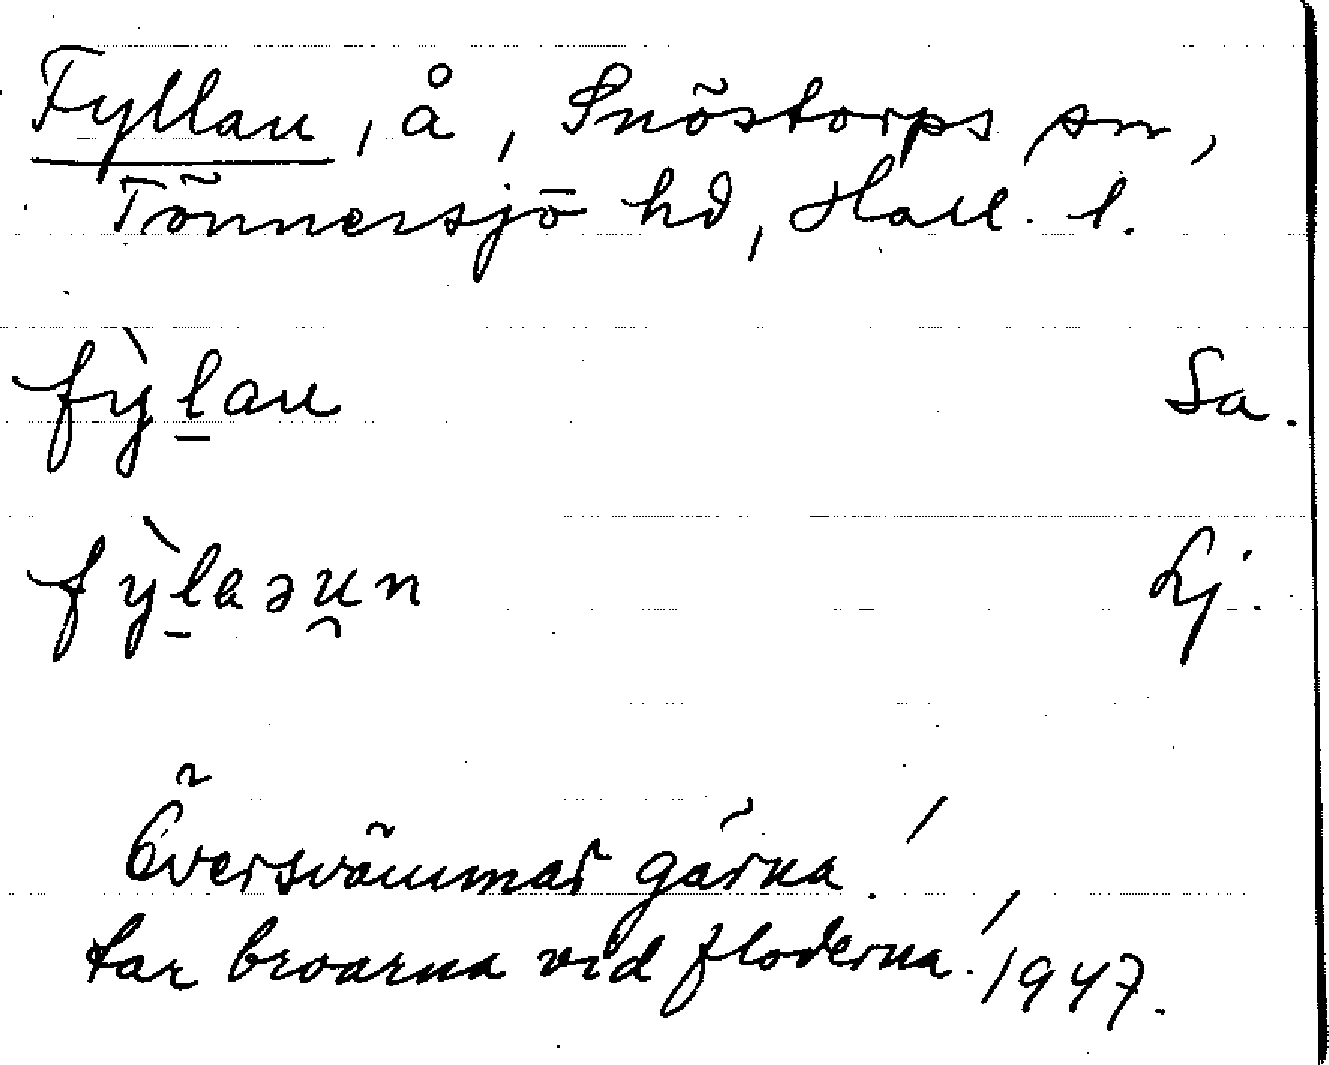 Fyllan, å, Snöstorps sn,
Tönnersjö hd, Hall. l.
fỳl̲an Sa.
fỳl̲aəu̯n Lj.
Översvämmar gärna!
tar broarna vid floderna! 1947.